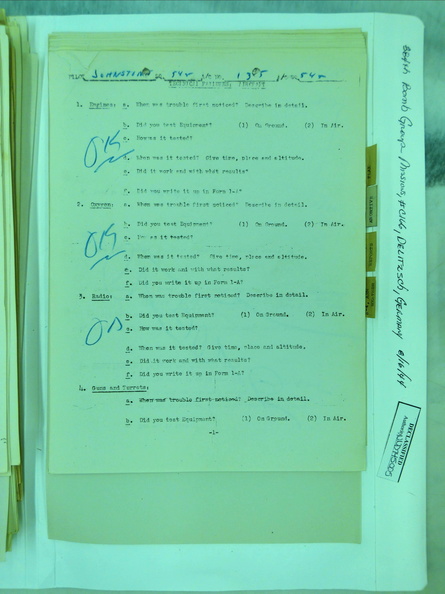 JOHNSTON 542 1325 542
1. Engines: a. When was trouble first noticed? Describe in detail.
b. Did you test Equipment? (1) On Ground. (2) In Air.
c. How was it tested?
OK
d. When was it tested? Give time, place and altitude.
e. Did it work and with what results?
f. Did you write it up in Form 1-A?
2. Oxygen: a. When was trouble first noticed? Describe in detail.
b. Did you test Equipment? (1) On Ground. (2) In Air.
c. How was it tested?
OK
d. When was it tested? Give time, place and altitude.
e. Did it work and with what results?
f. Did you write it up in Form 1-A?
3. Radio: a. When was trouble first noticed? Describe in detail.
b. Did you test Equipment? (1) On Ground. (2) In Air.
c. How was it tested?
d. When was it tested? Give time, place and altitude.
e. Did it work and with what results?
f. Did you write it up in Form 1-A?
4. Guns and Turrets:
a. When was trouble first noticed? Describe in detail.
b. Did you test Equipment? (1) On Ground. (2) In Air.
-1-
384th Bomb Group Mission, #166, DELITZSCH, GERMANY 8/16/44
DECLASSIFIED